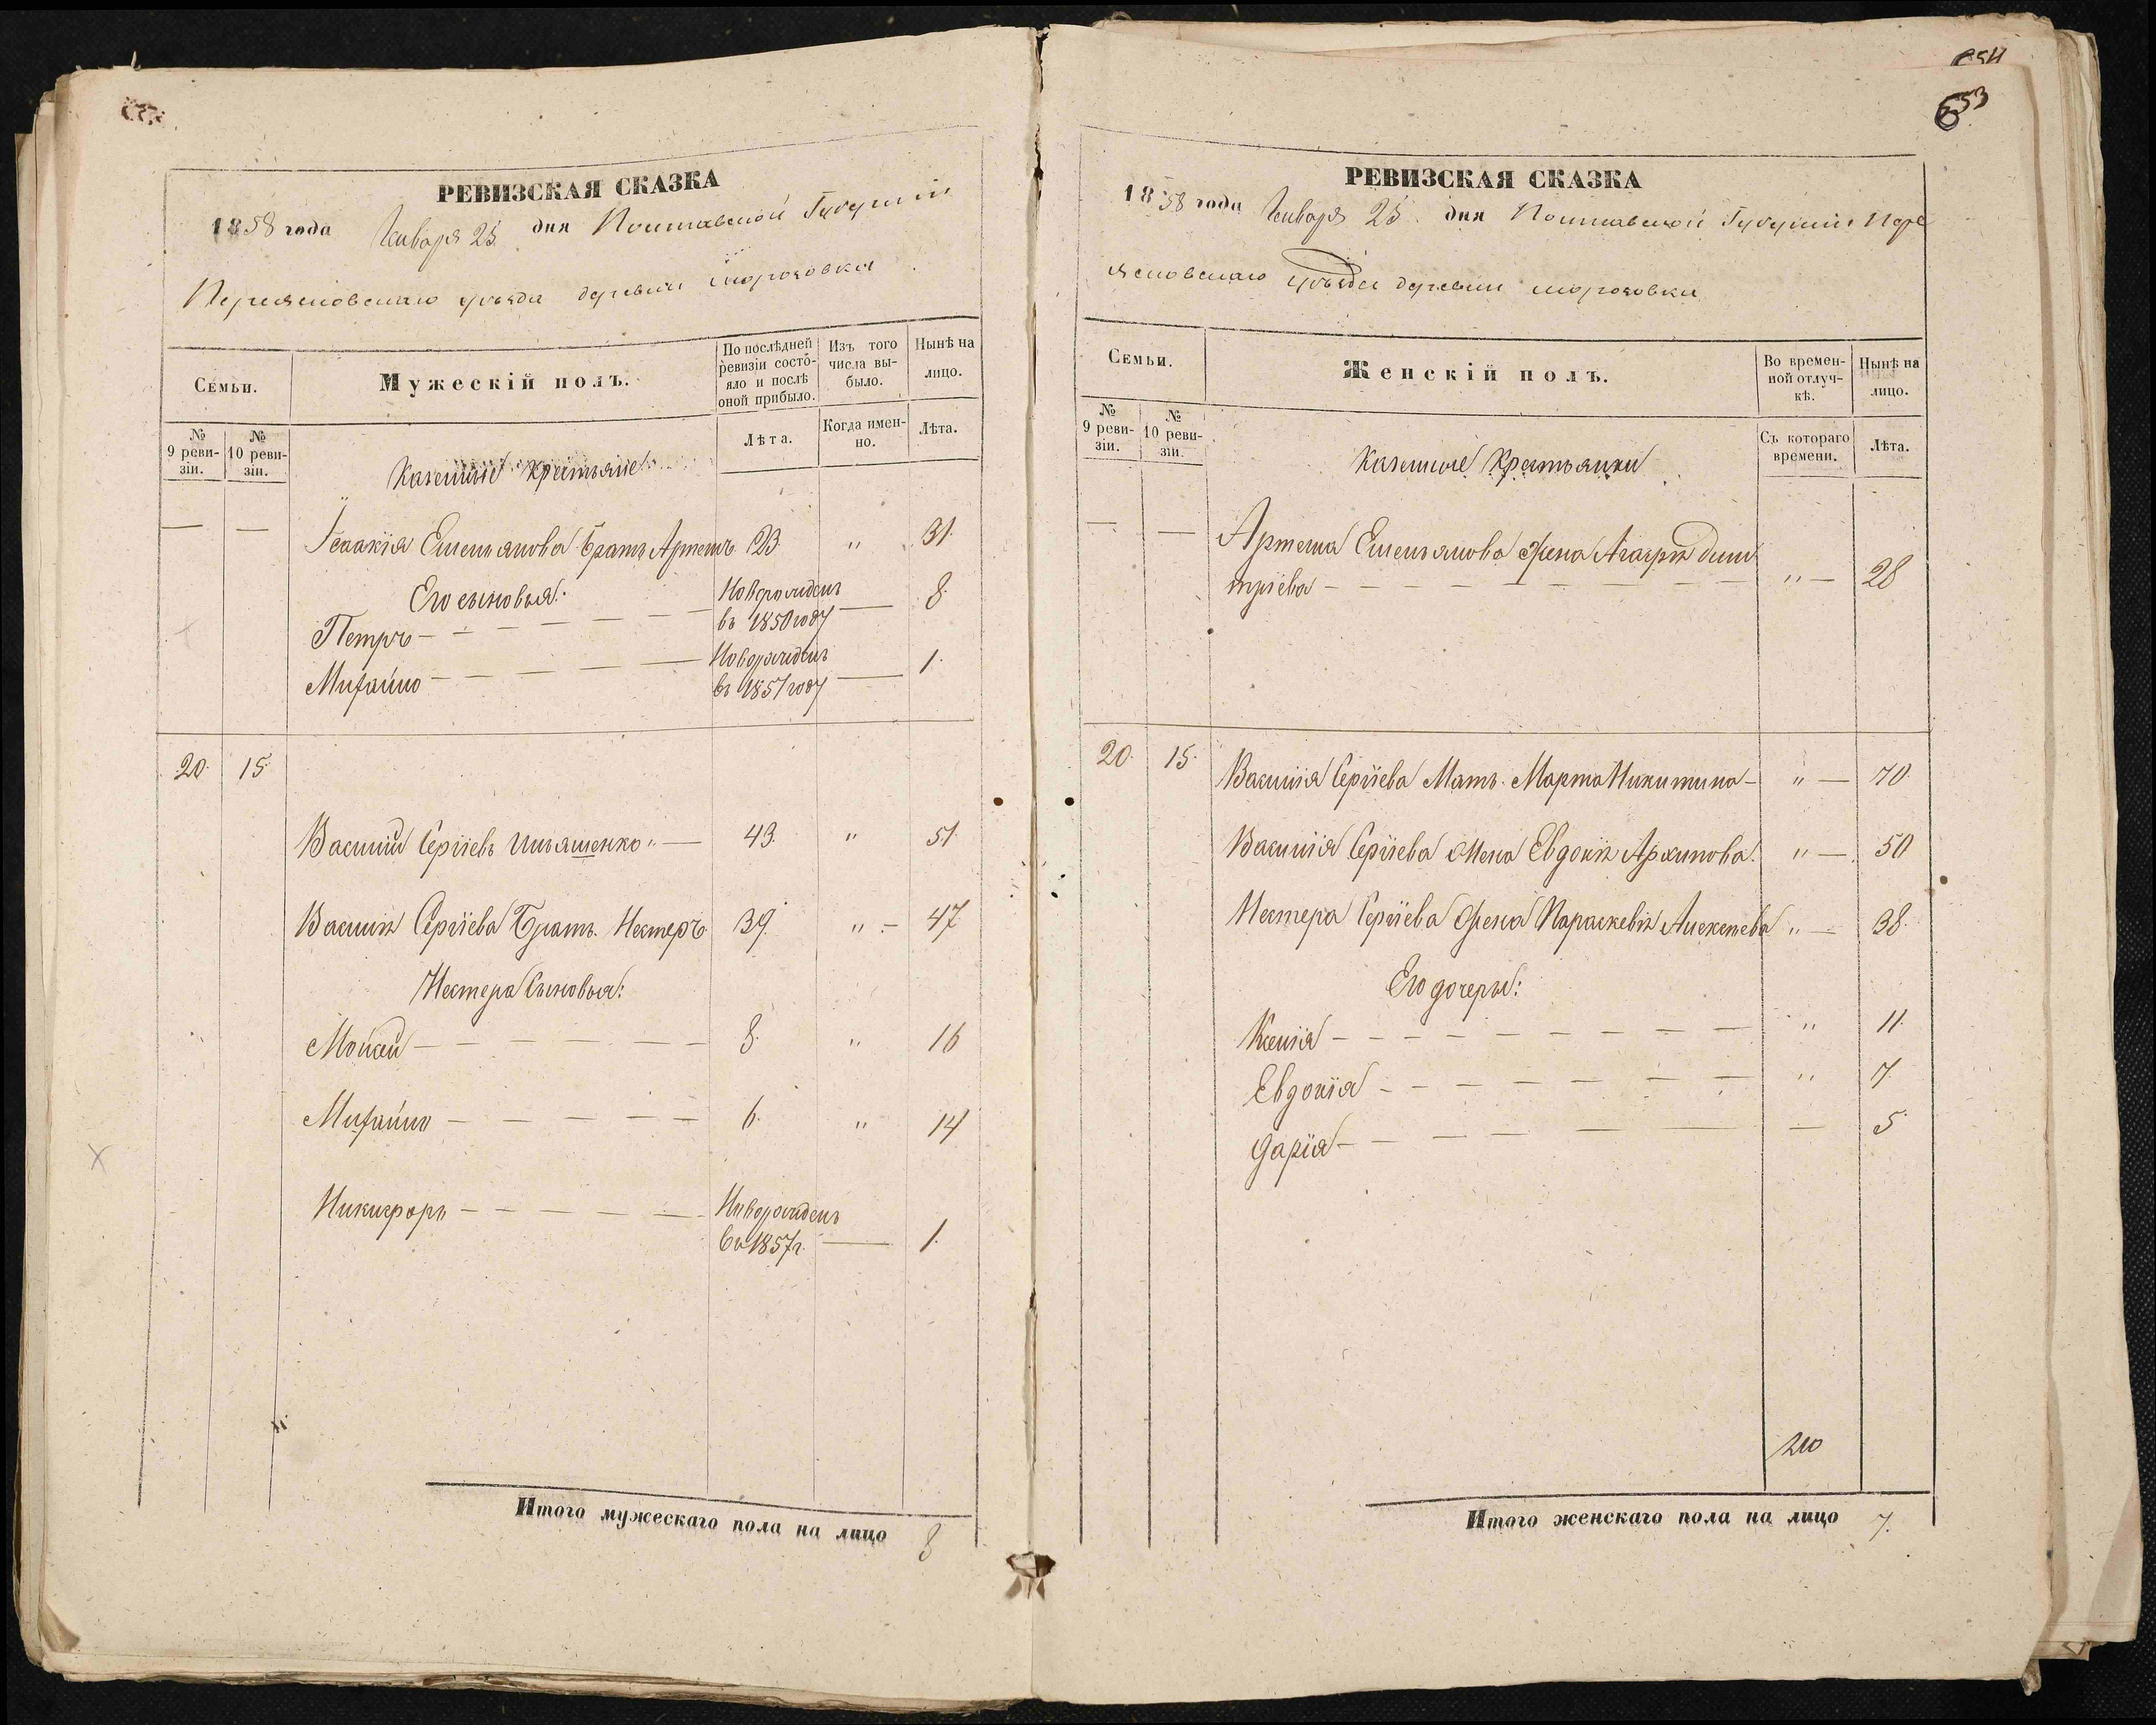 РЕВИЗСКАЯ СКАЗКА
1858 года Января 25 дня Полтавской Губерніи
Переясловскаго уѣзда деревни Морозовки
Семьи.
Мужескій полъ.
По послѣдней ревизіи состо-
яло и послѣ
оной прибыло.
Изъ того
числа вы-
было.
Нынѣ на
лицо.
№
9 реви-
зіи.
№
10 реви-
зіи.
Лѣта.
Когда имен-
но.
Лѣта.
Казенные Крестьяне
— — Ісаакія Емельянова Братъ Артемъ 23 " 31.
Его сыновья:
Петръ — Новорожденъ
въ 1850 году — 8.
Михайло — Новорожденъ
въ 1857 году — 1.
20. 15.
Василий Сергіевъ Ильяшенко " — 43. " 51.
Василія Сергіева Братъ Нестеръ 39. " — 47
Нестера Сыновья:
Мойсей — 8. " 16
Михайло — 6. " 14
Никифоръ — Новорожденъ
въ 1857 г. — 1.
Итого мужескаго пола на лицо 8
654
653
РЕВИЗСКАЯ СКАЗКА
1858 года Января 25 дня Полтавской Губерніи Пере
ясловскаго уѣзда деревни Морозовки
Семьи.
Женскій полъ.
Во времен-
ной отлуч-
кѣ.
Нынѣ на
лицо.
№
9 реви-
зіи.
№
10 реви-
зіи.
Съ котораго
времени.
Лѣта.
Казенные Крестьянки
— — Артема Емельянова Жена Агафія Дими
тріева — " — 28
20. 15. Василія Сергіева Мать Марта Никитина — " — 70.
Василія Сергіева Жена Евдокія Архипова. " — 50
Нестера Сергіева Жена Параскевія Алексѣева " — 38.
Его дочеры:
Ксенія — " 11.
Евдокія — " 7.
Дарія — — 5
Итого женскаго пола на лицо 7.